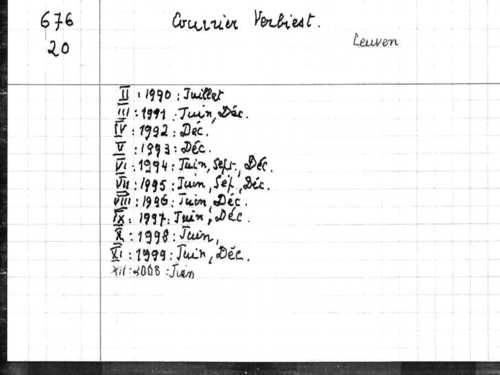 676
20
Courrier Verbiest.
Leuven
II : 1990 : Juillet
III : 1991 : Juin, Déc.
IV : 1992 : Déc.
V : 1993 : Déc.
VI : 1994 : Juin, Sept., Déc.
VII : 1995 : Juin, Sep, Déc.
VIII : 1996 : Juin, Déc.
IX : 1997 : Juin, Déc.
X : 1998 : Juin,
XI : 1999 : Juin, Déc.
XII : 2000 : Juin